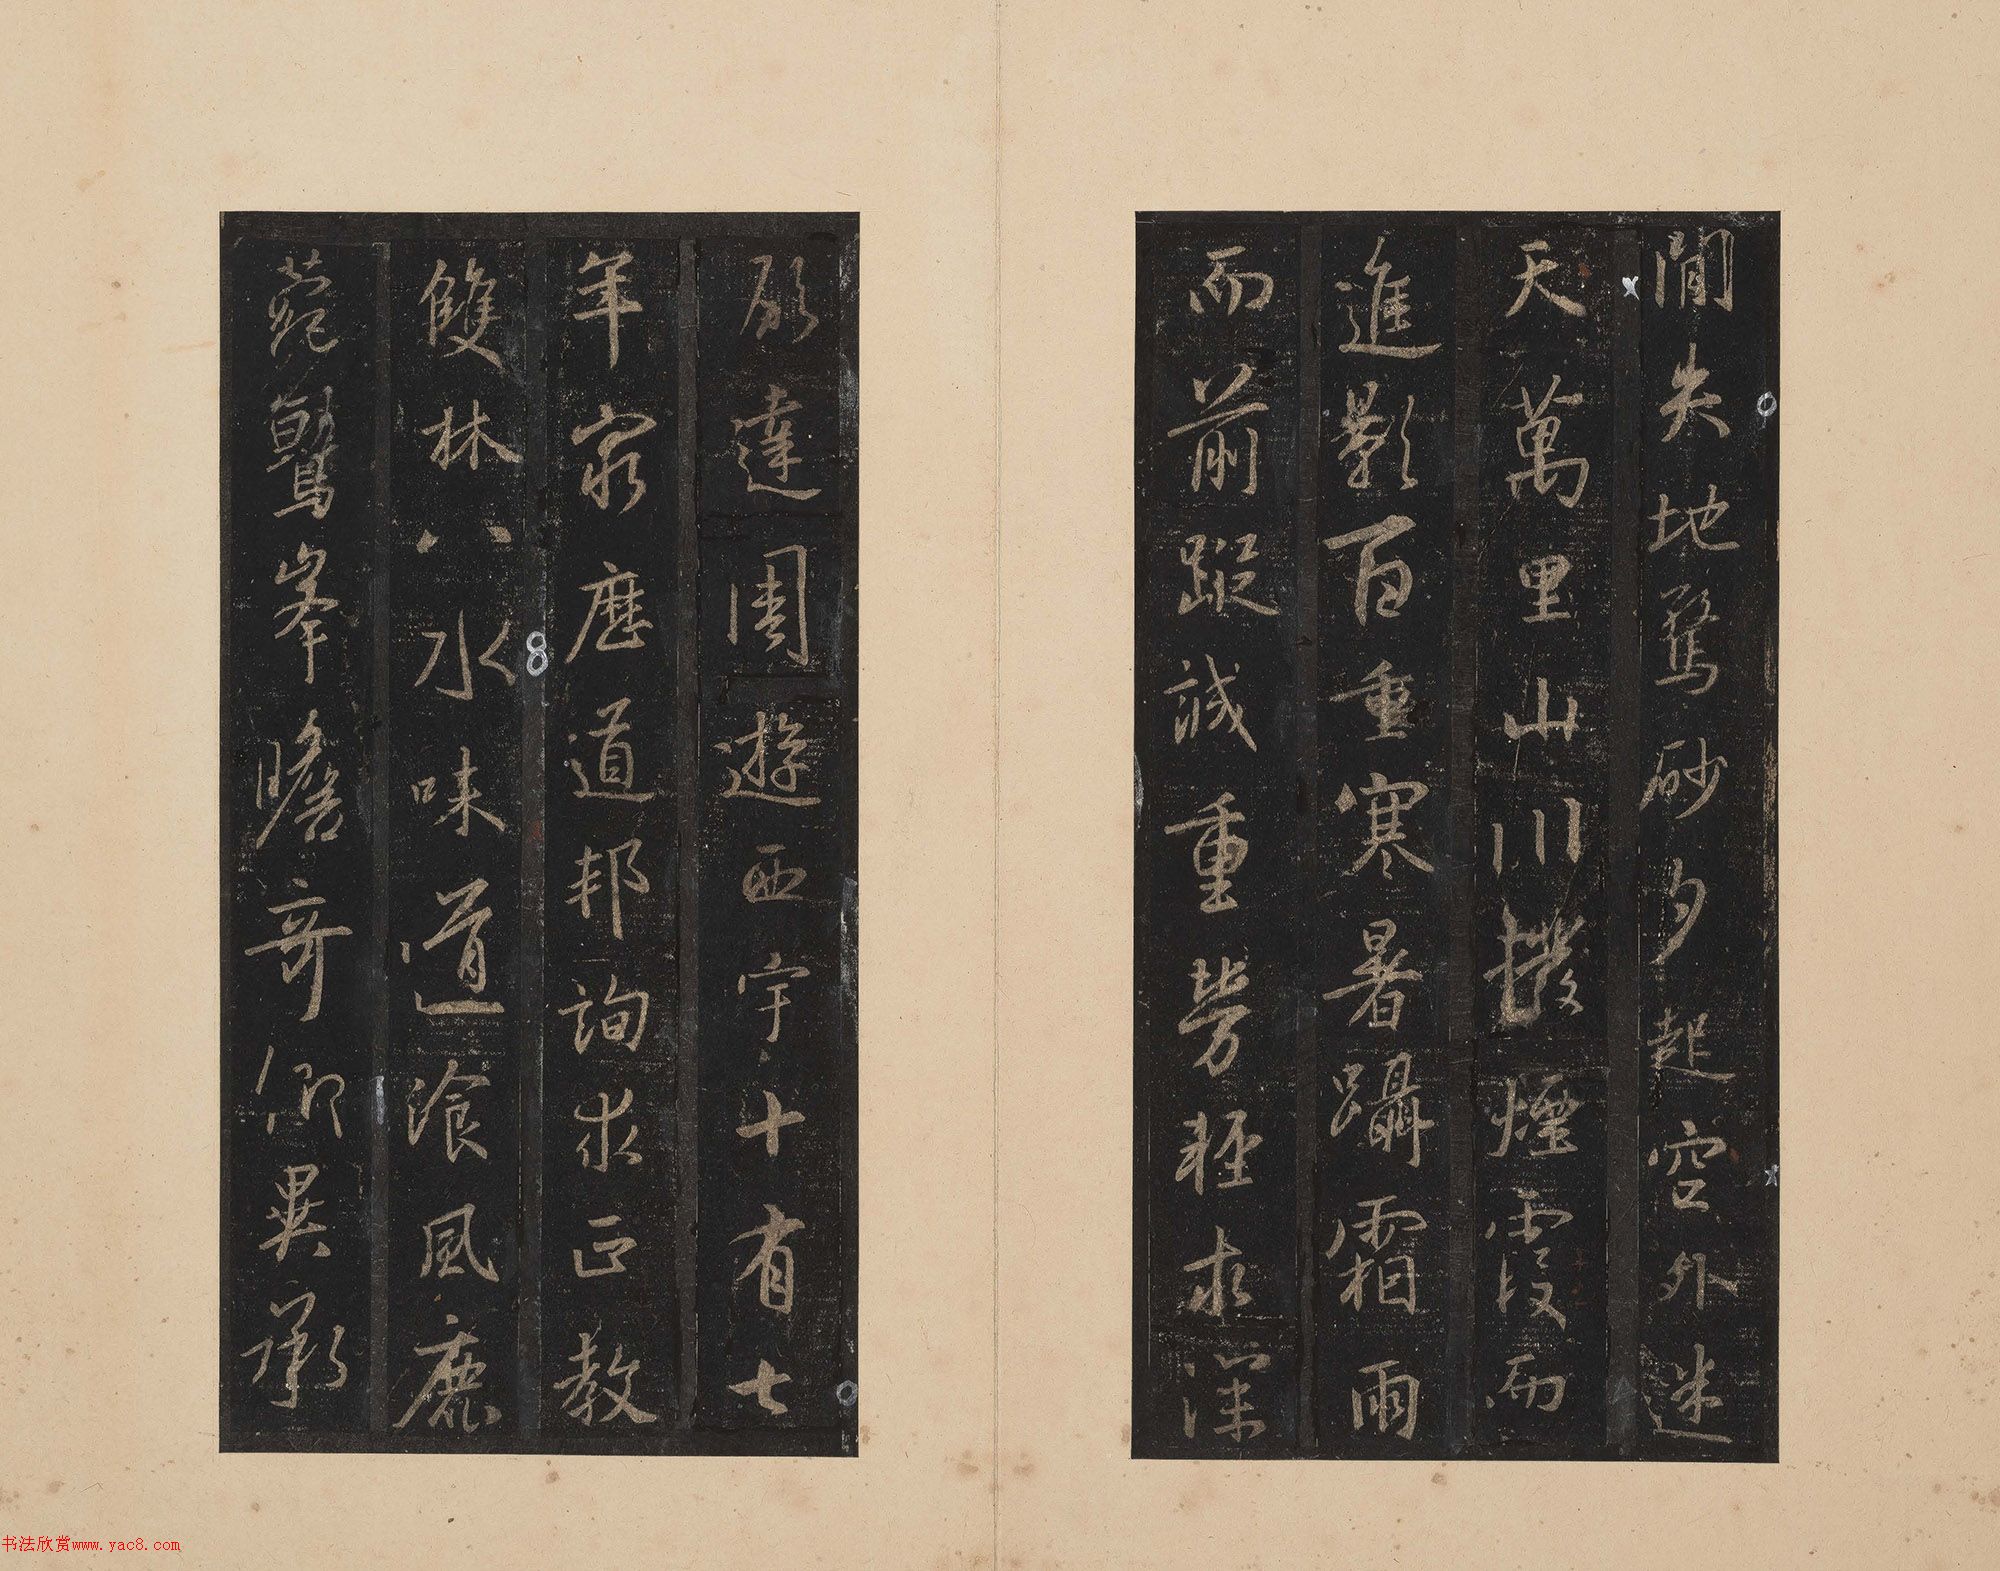 間失地驚砂夕起空外迷
天萬里山川撥煙霞而
進影百重寒暑躡霜雨
而前蹤誠重勞輕求深
願達周遊西宇十有七
年窮歷道邦詢求正教
雙林八水味道飡風鹿
菀鷲峯瞻奇仰異承
书法欣赏www.yac8.com